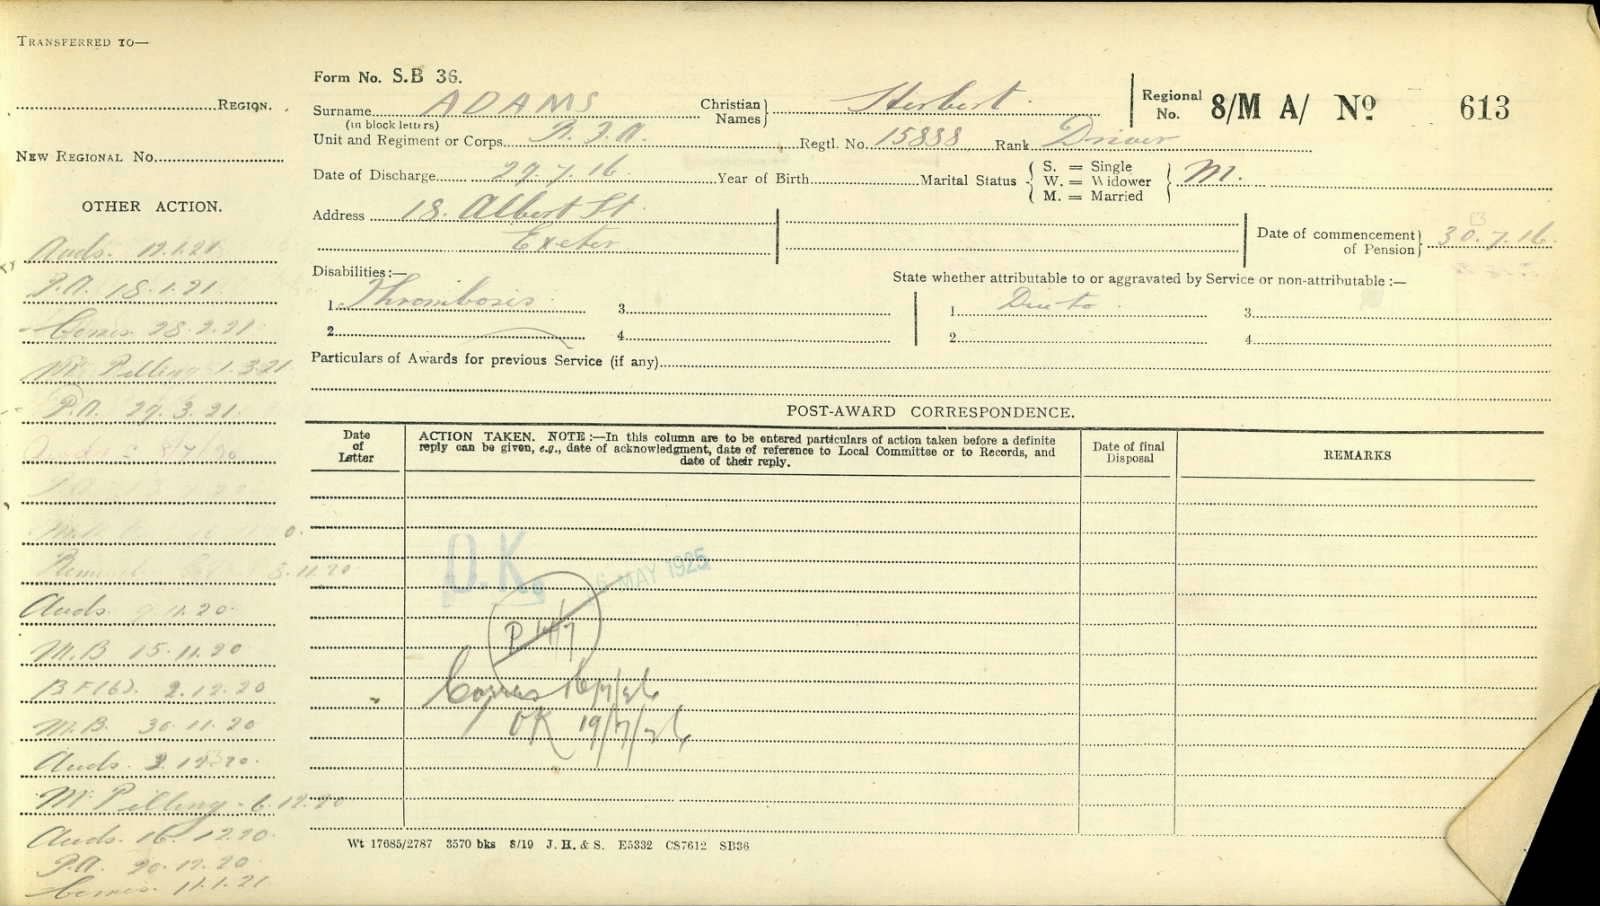 TRANSFERRED TO—
REGION.
NEW REGIONAL No.
OTHER ACTION.
Auds. 12.1.21
P.A. 18.1.21
Corres. 28.2.21
Mr Pelling 1.3.21
P.A. 27.3.21
8/7/20
8.11.20
Auds. 9.11.20
M.B 15.11.20
BF(6). 2.12.20
M.B. 30.11.20
Auds. 3.12.20.
Mr Pelling - 6.12.20
Auds. 16.12.20
P.A. 20.12.20
Corres. 11.1.21
Form No. S.B 36.
Surname ADAMS Christian Names Herbert. Regional No. 8/M A/ No 613
(in block letters)
Unit and Regiment or Corps R.F.A. Regtl. No. 15838 Rank Driver
Date of Discharge 29.7.16 Year of Birth Marital Status S. = Single W. = Widower M. = Married M.
Address 18. Albert St.
Exeter
Date of commencement of Pension 30.7.16.
Disabilities :— State whether attributable to or aggravated by Service or non-attributable :—
1. Thrombosis 3 1 Due to 3
2 4 2 4
Particulars of Awards for previous Service (if any)
POST-AWARD CORRESPONDENCE.
Date of Letter
ACTION TAKEN. NOTE :—In this column are to be entered particulars of action taken before a definite
reply can be given, e.g., date of acknowledgment, date of reference to Local Committee or to Records, and
date of their reply.
Date of final Disposal
REMARKS
O.K.
6 MAY 1925
P 14/7
Corres 16/7/26
OK 19/7/26
Wt 17685/2787 3570 bks 8/19 J. H. & S. E5332 CS7612 SB36